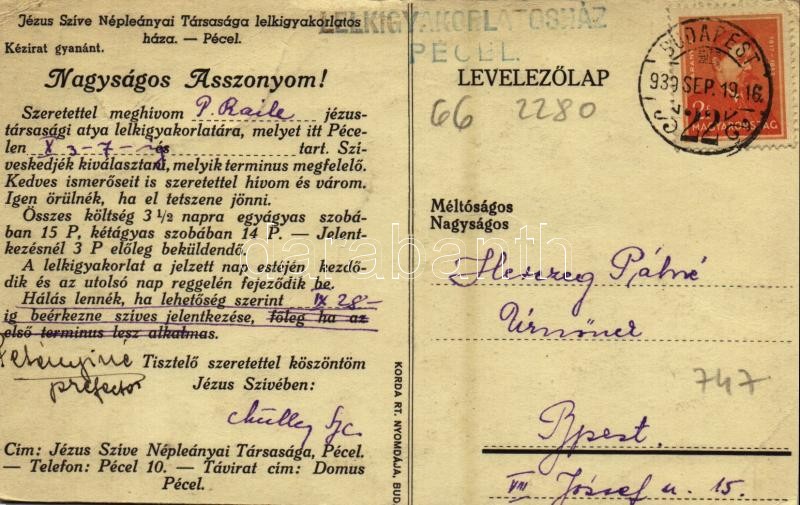 Jézus Szíve Népleányai Társasága lelkigyakorlatos
háza. — Pécel.
Kézirat gyanánt.
Nagyságos Asszonyom!
Szeretettel meghívom P. Raile jézus-
társasági atya lelkigyakorlatára, melyet itt Péce-
len X 3-7-ig és tart. Szí-
veskedjék kiválasztani, melyik terminus megfelelő.
Kedves ismerőseit is szeretettel hívom és várom.
Igen örülnék, ha el tetszene jönni.
Összes költség 3 1/2 napra egyágyas szobá-
ban 15 P, kétágyas szobában 14 P. — Jelent-
kezésnél 3 P előleg beküldendő.
A lelkigyakorlat a jelzett nap estéjén kezdő-
dik és az utolsó nap reggelén fejeződik be.
Hálás lennék, ha lehetőség szerint IX 28-
ig beérkezne szíves jelentkezése, főleg ha az
első terminus lesz alkalmas.
Tisztelő szeretettel köszöntöm
Jézus Szívében:
Cím: Jézus Szíve Népleányai Társasága, Pécel.
— Telefon: Pécel 10. — Távirat cím: Domus
Pécel.
KORDA RT. NYOMDÁJA, BUD.
LELKIGYAKORLATOSHÁZ
PÉCEL
LEVELEZŐLAP
66 2280
BUDAPEST
939 SEP. 19. 16
MAGYARORSZÁG
Méltóságos
Nagyságos
Herczeg Pálné
Úrnőnek
747
Bpest.
VIII József u. 15.
darabanth